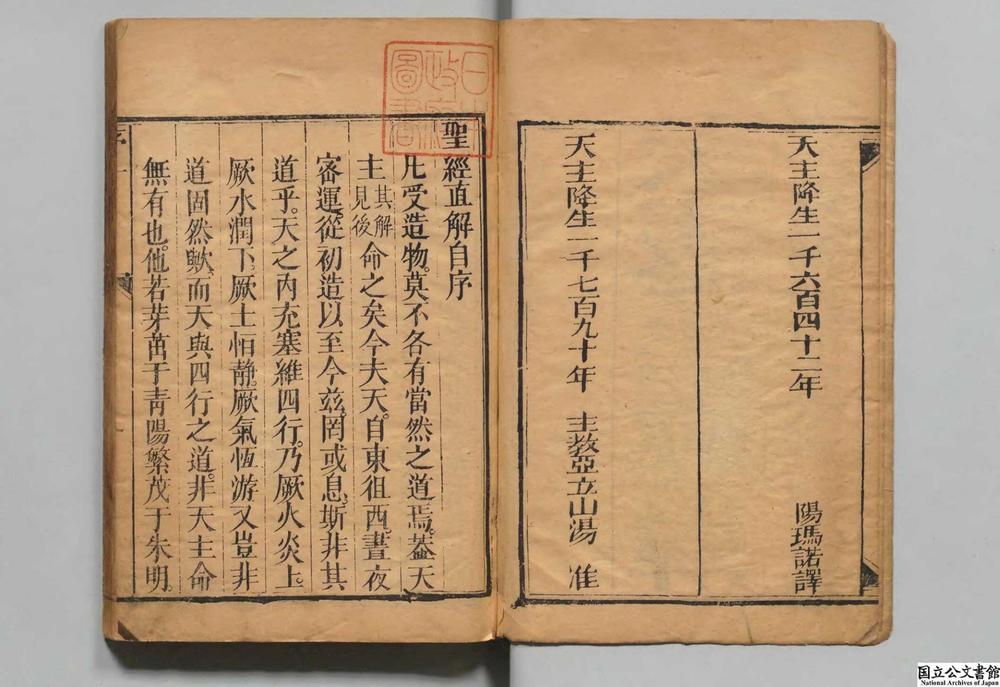 天主降生一千六百四十二年　陽瑪諾譯
天主降生一千七百九十年　主教亞立山湯　准
聖經直解自序
凡受造物。莫不各有當然之道焉。蓋天
主其解見後命之矣今夫天。自東徂西。晝夜
審運。從初造以至今兹。罔或息。斯非其
道乎。天之內充塞維四行。乃厥火炎上。
厥水潤下。厥土恒靜。厥氣恆游又豈非
道固然歟。而天與四行之道。非天主命
無有也。他若芽茁于靑陽繁茂于朱明
日本政府圖書
国立公文書館
National Archives of Japan